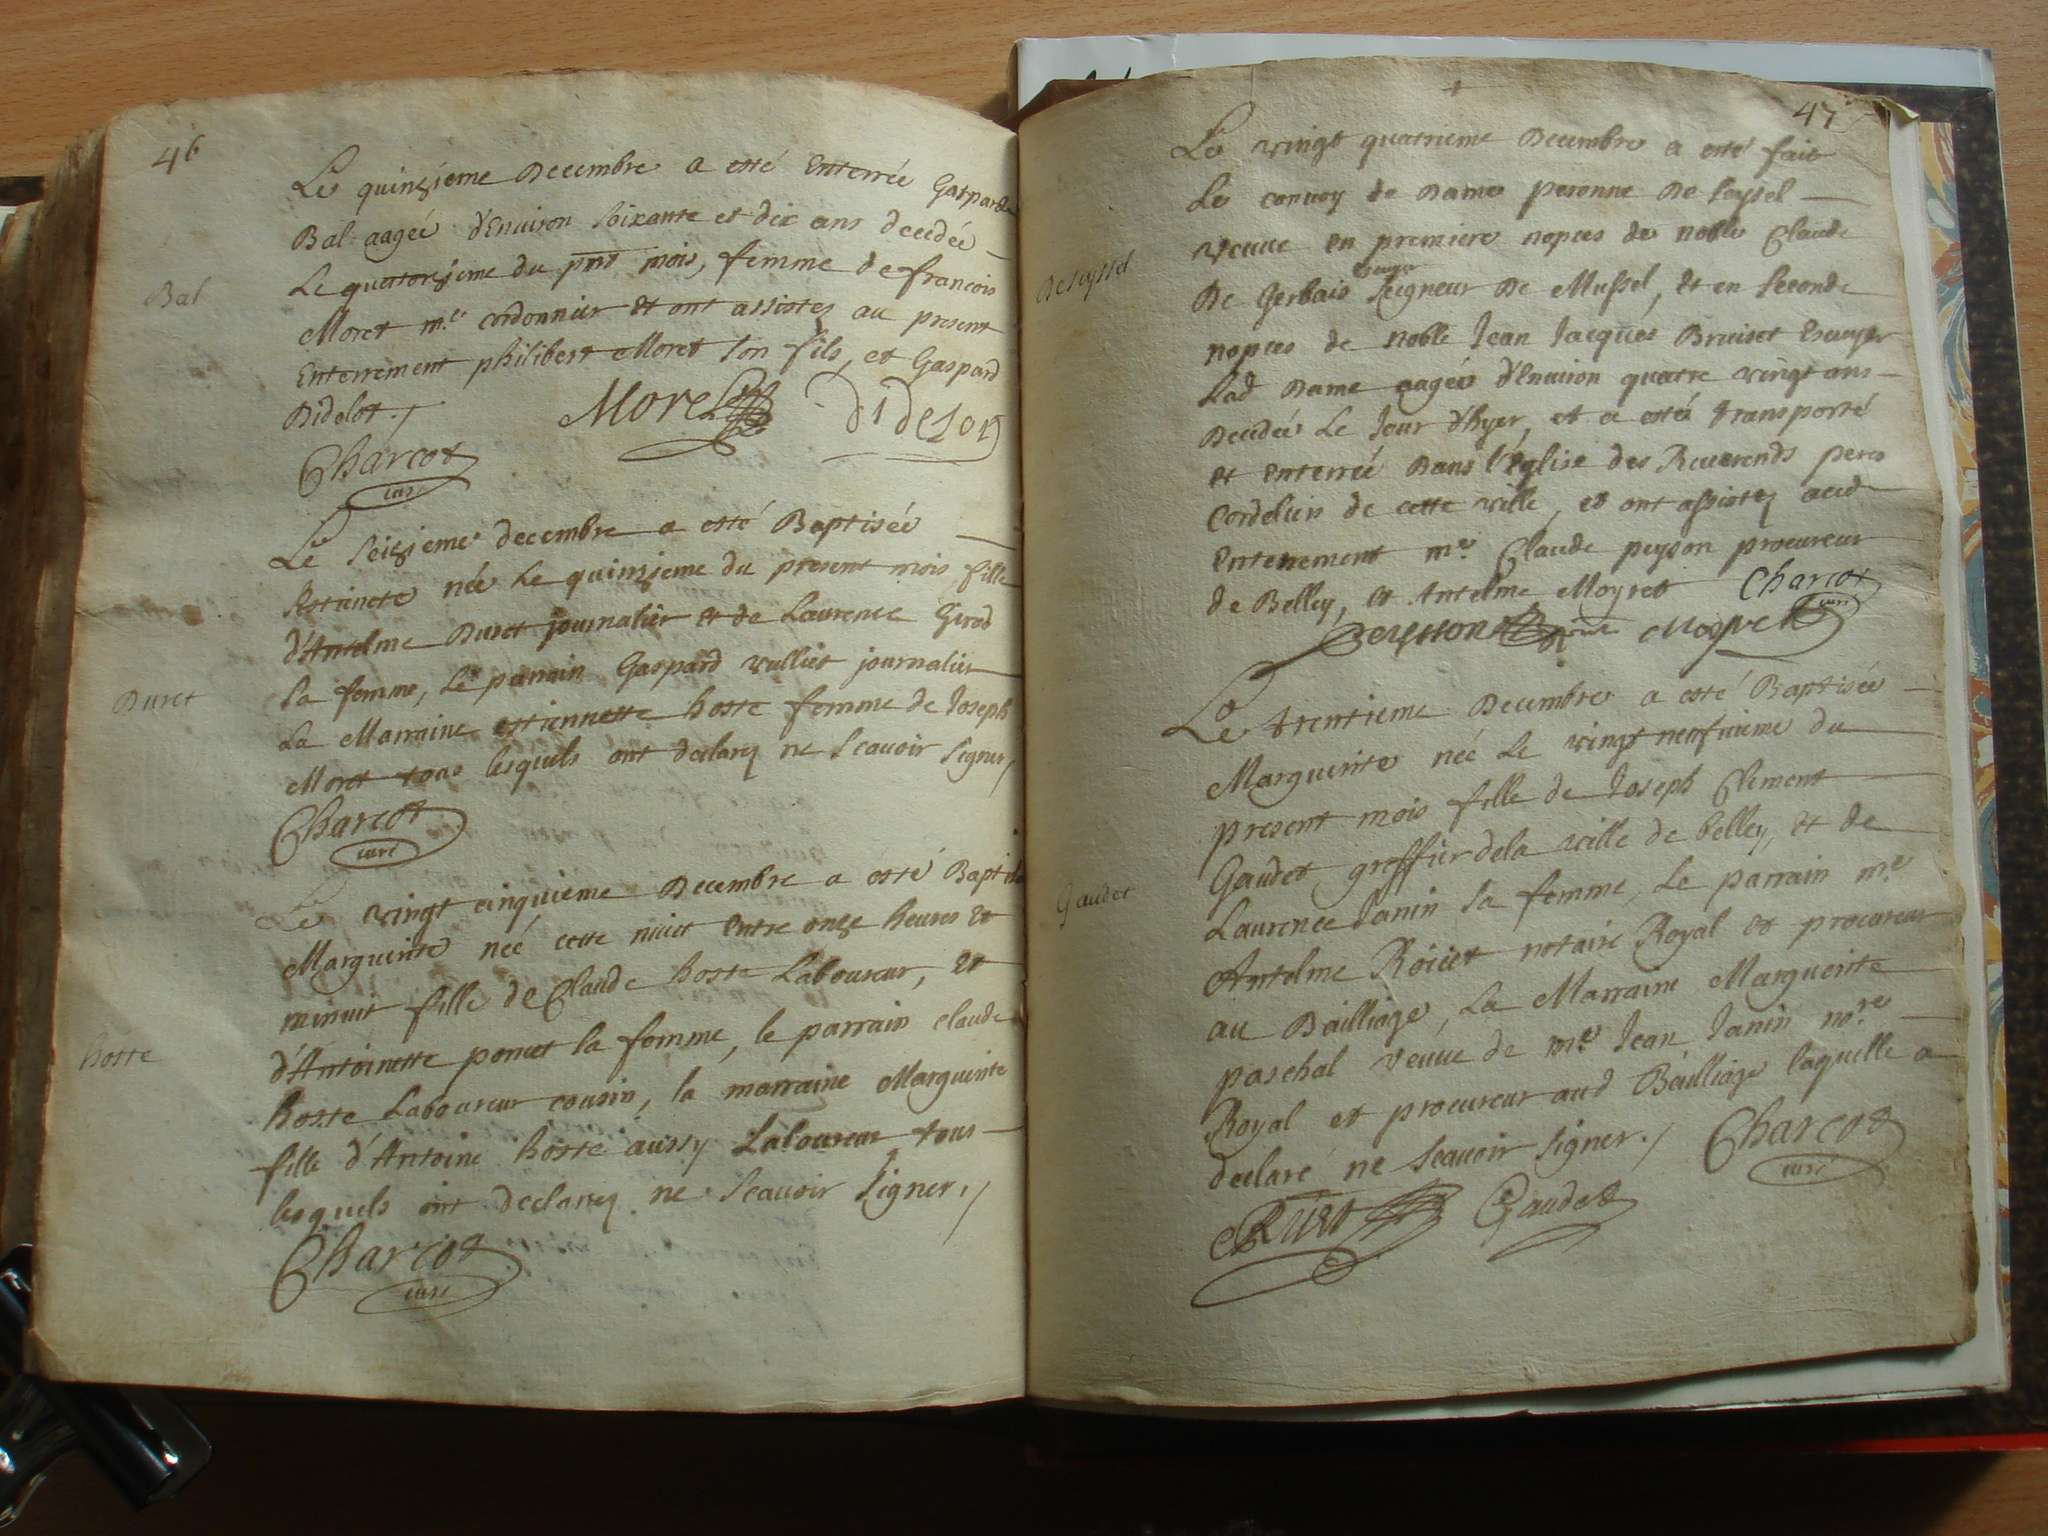 46
Le quinzieme Decembre a esté Enterrée Gasparde
Bal aagée d'Environ soixante et dix ans decedée
Bal
Le quatorzieme du pnt mois, femme de francois
Moret me cordonnier et ont assistez au present
Enterrement philibert Moret son fils, et Gaspard
Didelot./
Morel didelot
Charcot
curé
Le seizieme decembre a esté Baptisée
née le quinzieme du present mois fille
d'Antelme Duret journalier et de Laurence Girod
Duret
sa femme, le parrain Gaspard vulliet journalier
La Marraine estiennette hoste femme de Joseph
Moret tous lesquels ont declarez ne scavoir signer/
Charcot
curé
Le vingt cinquieme Decembre a esté
Marguerite née cette nuict Entre onze heures et
minuit fille de Claude hoste Laboureur, et
hoste
d'Antoinette poncet sa femme, le parrain claude
hoste Laboureur cousin, la marraine Marguerite
fille d'Antoine hoste aussy Laboureur tous
lesquels ont declarez ne scavoir signer./
Charcot
curé
47
Le vingt quatrieme Decembre a esté fait
Le convoy de Dame peronne De seyssel
veuve en premiere nopces de noble Claude
De seyssel
De Gerbais Escuyer seigneur De Mussel, et en seconde
nopces de noble Jean Jacques Bruiset Escuyer
Lad Dame aagée d'Environ quatre vingt ans
Decedée Le Jour d'hyer, et a esté transporté
et enterrée Dans l'Eglise des Reverends peres
Cordeliers de cette ville, et ont assistez aud
Enterrement me Claude peyson procureur
de Belley, et Antelme Moyret Charcot
curé
Peysson Moyret
Le trentieme Decembre a esté Baptisée
Marguerite née Le vingt neufvieme du
present mois fille de Joseph Clement
Gaudet greffier de la ville de belley, et de
Gaudet
Laurence Janin sa femme, Le parrain me
Antelme Roüet notaire Royal et procureur
au Bailliage, La Marraine Marguerite
paschal veuve de me Jean Janin nore
Royal et procureur aud Bailliage laquelle a
declaré ne scavoir signer./ Charcot
curé
Gaudet